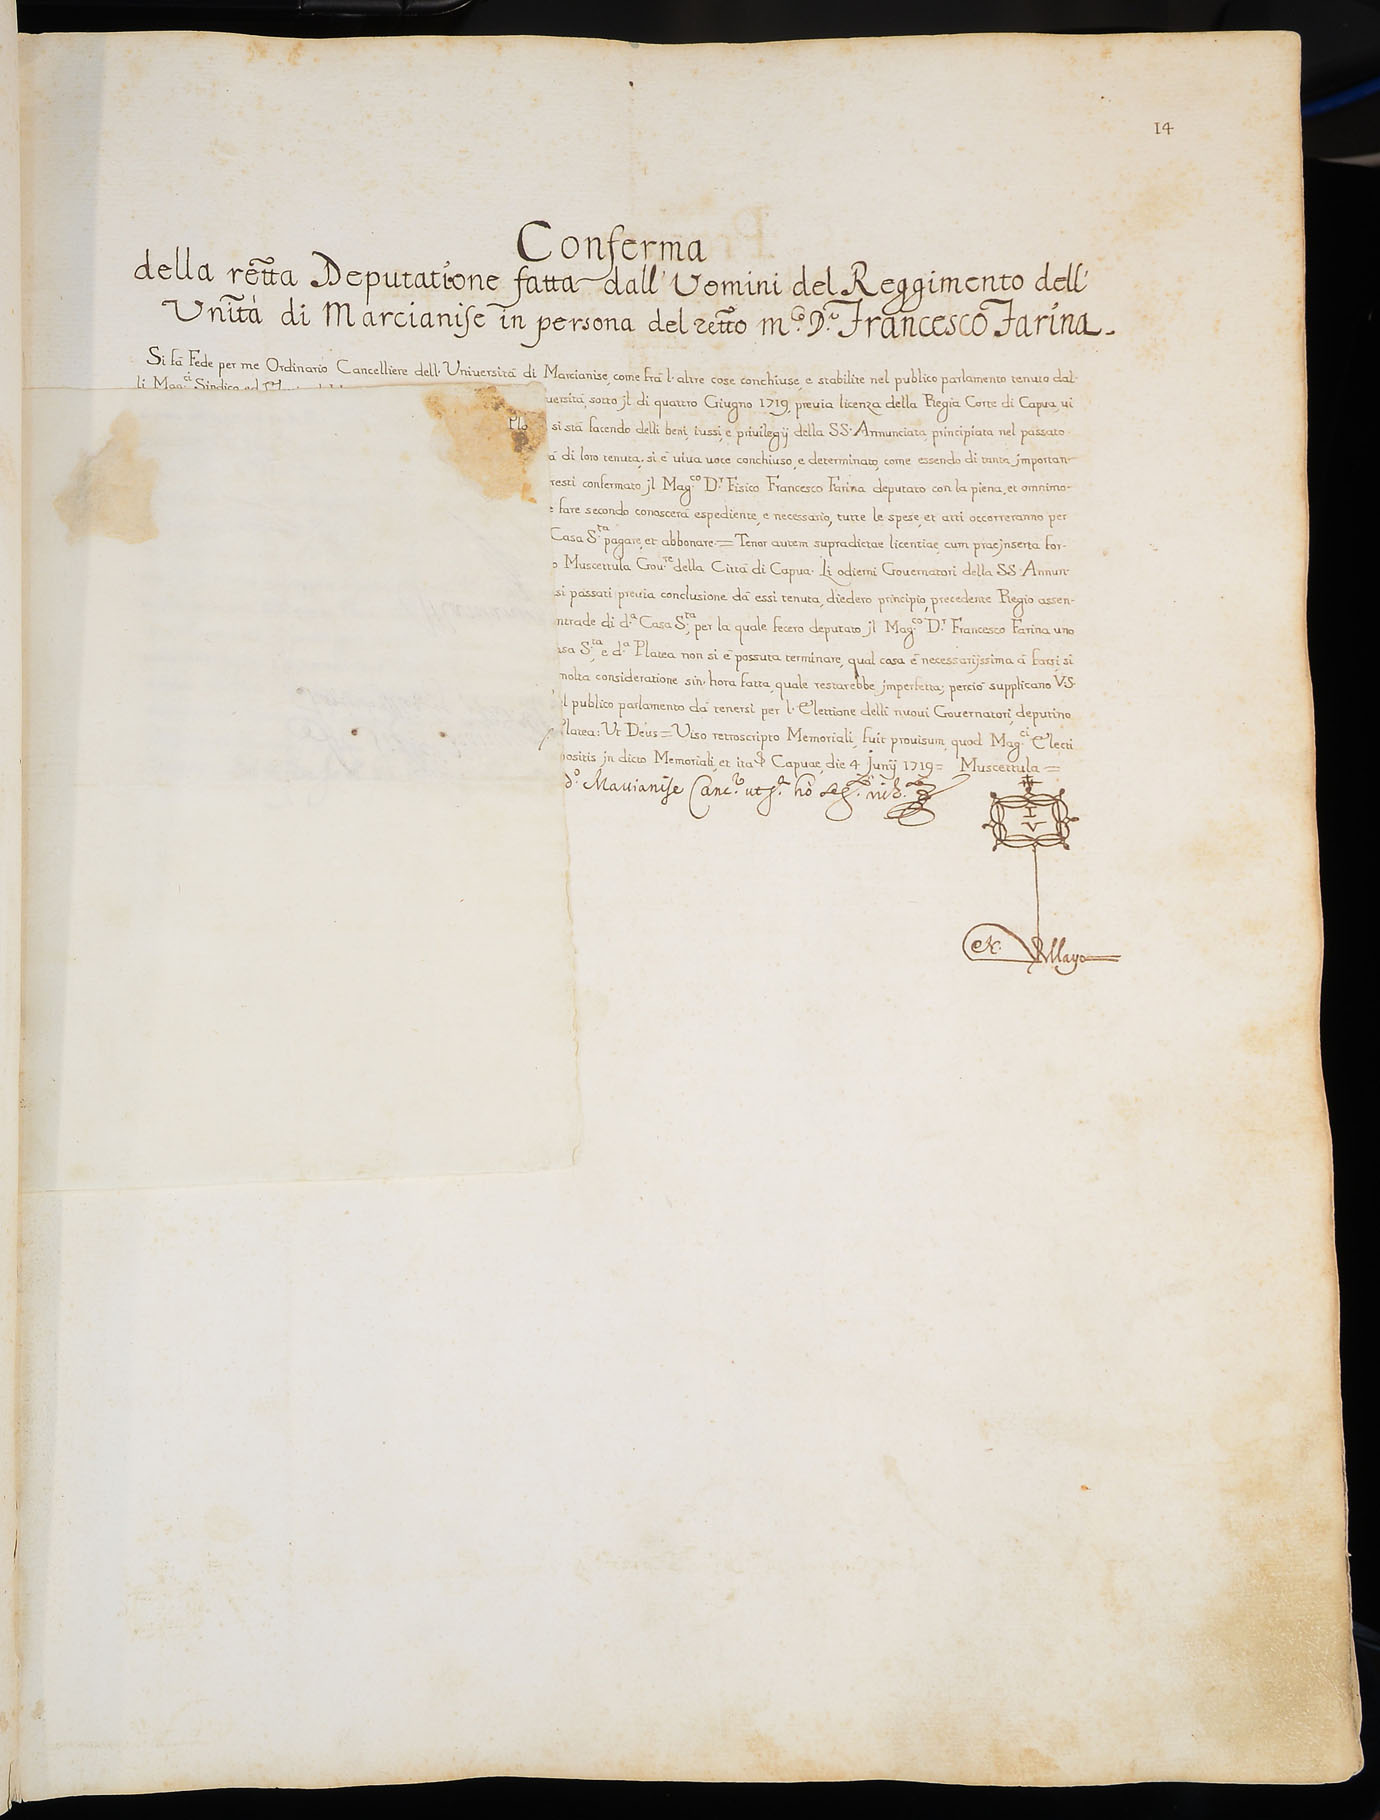 14
Conferma
della retta Deputatione fatta dall' Uomini del Reggimento dell'
Unità di Marcianise in persona del retto m.co D.r Francesco Farina
Si fà Fede per me Ordinario Cancelliere dell'Università di Marcianise, come frà l'altre cose conchiuse, e stabilite nel publico parlamento tenuto dal
li Mag.ci Sindico ed
uersità, sotto jl di quattro Giugno 1719, preuia licenza della Regia Corte di Capua, ui
si stà facendo delli beni, iussi, e priuilegij della SS. Annunciata, principiata nel passato
à di loro tenuta; si è uiua uoce conchiuso, e determinato, come essendo di tanta jmportan-
resti confermato jl Mag.co D.r Fisico Francesco Farina deputato con la piena, et omnimo-
e fare secondo conoscerà espediente, e necessario, tutte le spese, et atti occorreranno per
Casa S.ta pagare, et abbonare = Tenor autem supradictae licentiae, cum praejnserta for-
o Muscettula Gou.re della Città di Capua. Li odierni Gouernatori della SS. Annun-
si passati preuia conclusione dà essi tenuta, diedero principio, precedente Regio assen-
ntrade di d.a Casa S.ta, per la quale fecero deputato jl Mag.co D.r Francesco Farina uno
asa S.ta, e d.a Platea non si è possuta terminare, qual cosa è necessarijssima à farsi, si
molta consideratione sin'hora fatta, quale restarebbe jmperfetta; perciò supplicano V.S.
l publico parlamento dà tenersi per l'Elettione delli nuoui Gouernatori, deputino
latea: Ut Deus = Uiso retroscripto Memoriali, fuit prouisum, quod Mag.ci Electi
positis jn dicto Memoriali, et ita Capuae, die 4 Junij 1719 = Muscettula =
Canc.ro
I
V